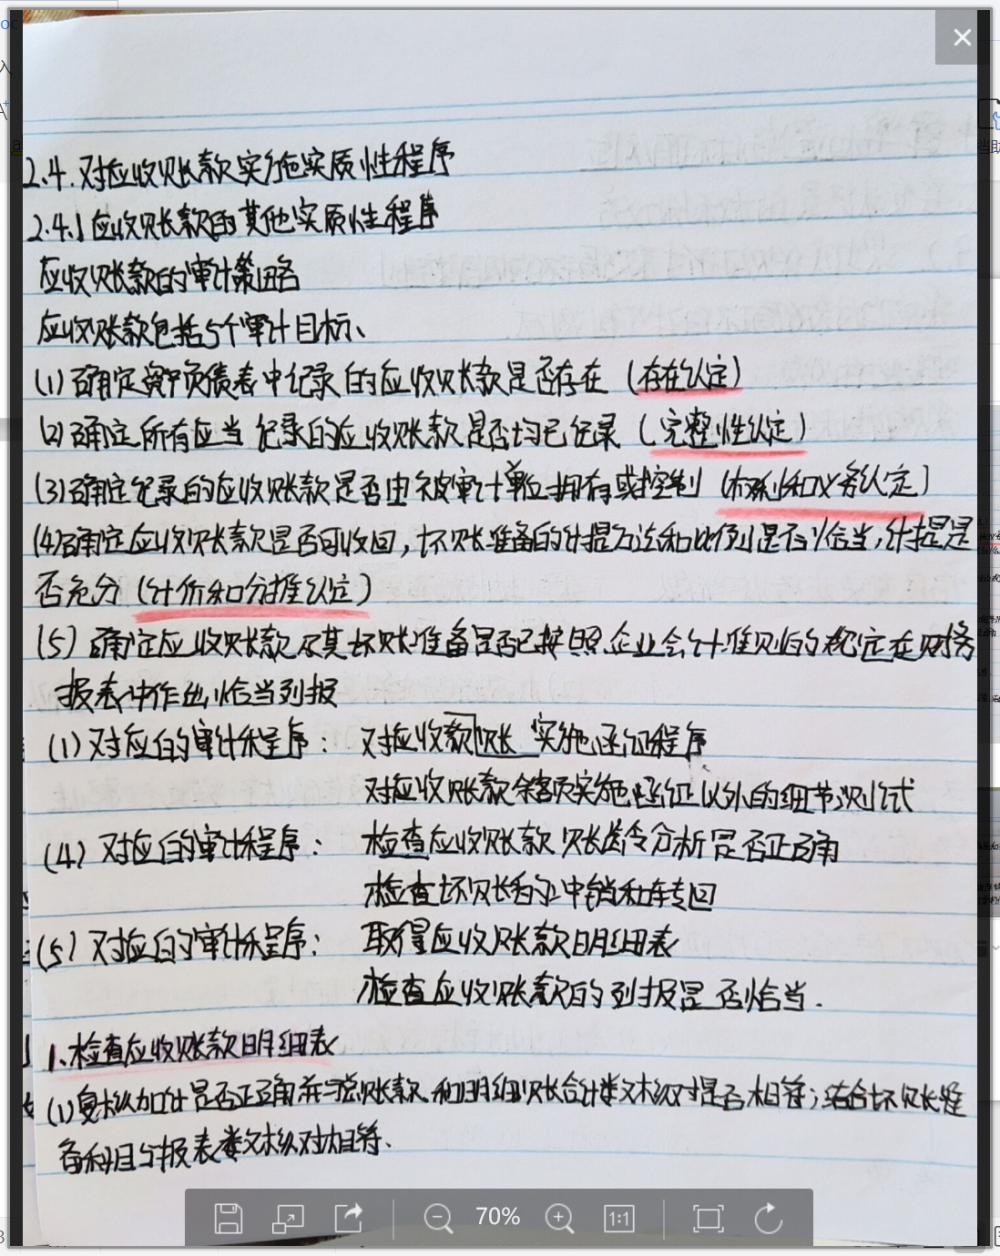 2.4.对应收账款实施实质性程序
2.4.1应收账款的其他实质性程序
应收账款的审计策略
应收账款包括5个审计目标、
(1)确定资产负债表中记录的应收账款是否存在(存在认定)
(2)确定所有应当记录的应收账款是否均已记录(完整性认定)
(3)确定记录的应收账款是否由被审计单位拥有或控制(权利和义务认定)
(4)确定应收账款是否可收回,坏账准备的计提方法和比例是否恰当,计提是
否充分(计价和分摊认定)
(5)确定应收账款及其坏账准备是否已按照企业会计准则的规定在财务
报表中作出恰当列报
(1)对应的审计程序:对应收款账实施函证程序
对应收账款余额实施函证以外的细节测试
(4)对应的审计程序:检查应收账款账龄分析是否正确
检查坏账的冲销和转回
(5)对应的审计程序:取得应收账款明细表
检查应收账款的列报是否恰当.
1.检查应收账款明细表
(1)复核加计是否正确并与总账款和明细账合计数核对是否相符;结合坏账准
备科目与报表数核对相符.
70%
1:1